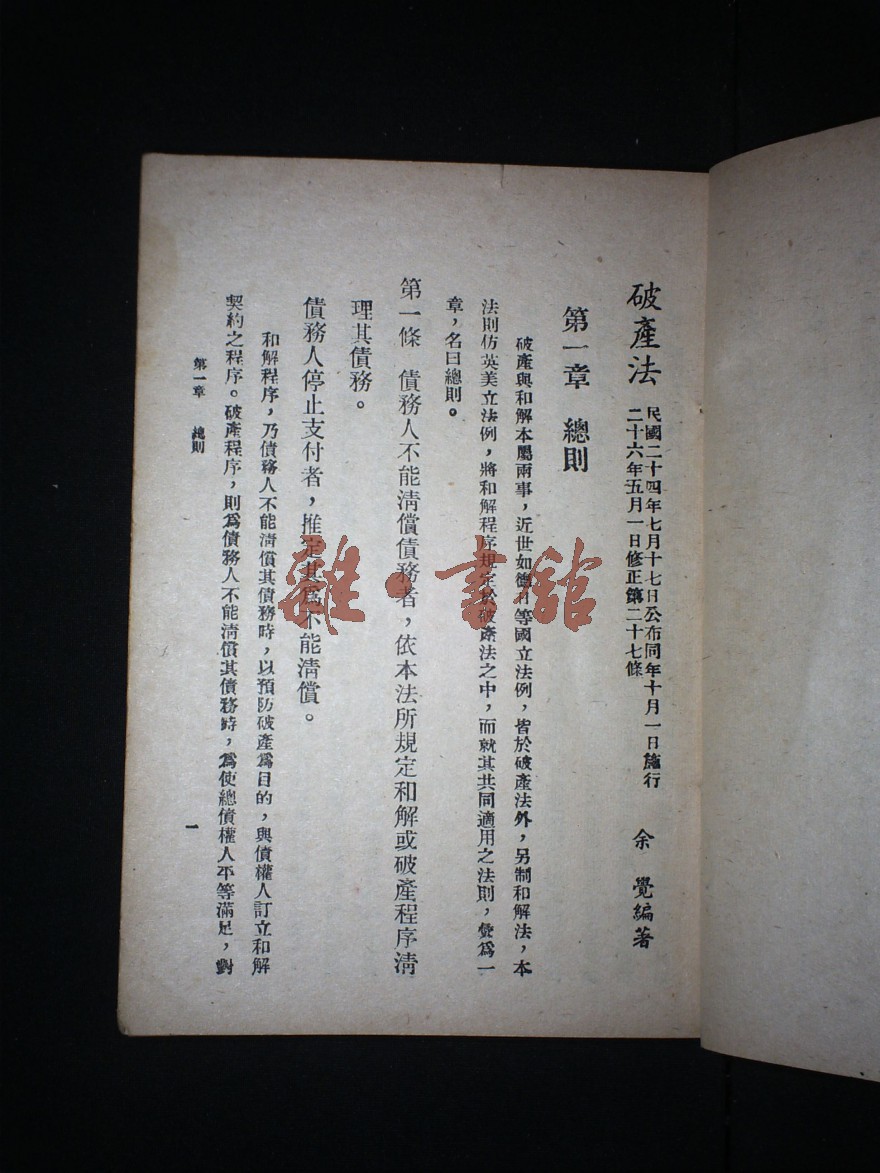 破產法
民國二十四年七月十七日公布同年十月一日施行
二十六年五月一日修正第二十七條
余覺編著
第一章 總則
破產與和解本屬兩事，近世如德日等國立法例，皆於破產法外，另制和解法，本
法則仿英美立法例，將和解程序規定於破產法之中，而就其共同適用之法則，彙爲一
章，名曰總則。
第一條 債務人不能淸償債務者，依本法所規定和解或破產程序淸
理其債務。
債務人停止支付者，推定其爲不能淸償。
和解程序，乃債務人不能淸償其債務時，以預防破產爲目的，與債權人訂立和解
契約之程序。破產程序，則爲債務人不能淸償其債務時，爲使總債權人平等滿足，對
第一章 總則
一
雜·書館